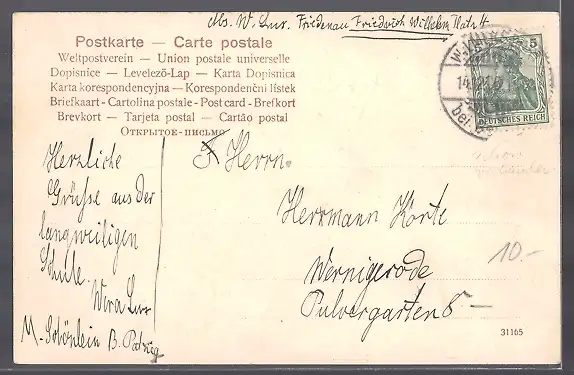 Abs. W. Lux. Friedenau Friedrich Wilhelm Platz 4
Postkarte — Carte postale
Weltpostverein — Union postale universelle
Dopisnice — Levelező-Lap — Karta Dopisnica
Karta korespondencyjna — Korespondenční lístek
Briefkaart - Cartolina postale - Post card - Brefkort
Brevkort — Tarjeta postal — Cartão postal
Открытое-письмо
5
DEUTSCHES REICH
bei
Herzliche
Grüße aus der
langweiligen
Schule.
Wera Lux
M. Schönlein B.
Herrn.
Herrmann Korte
Wernigerode
Pulvergarten 8 —
10.-
31165